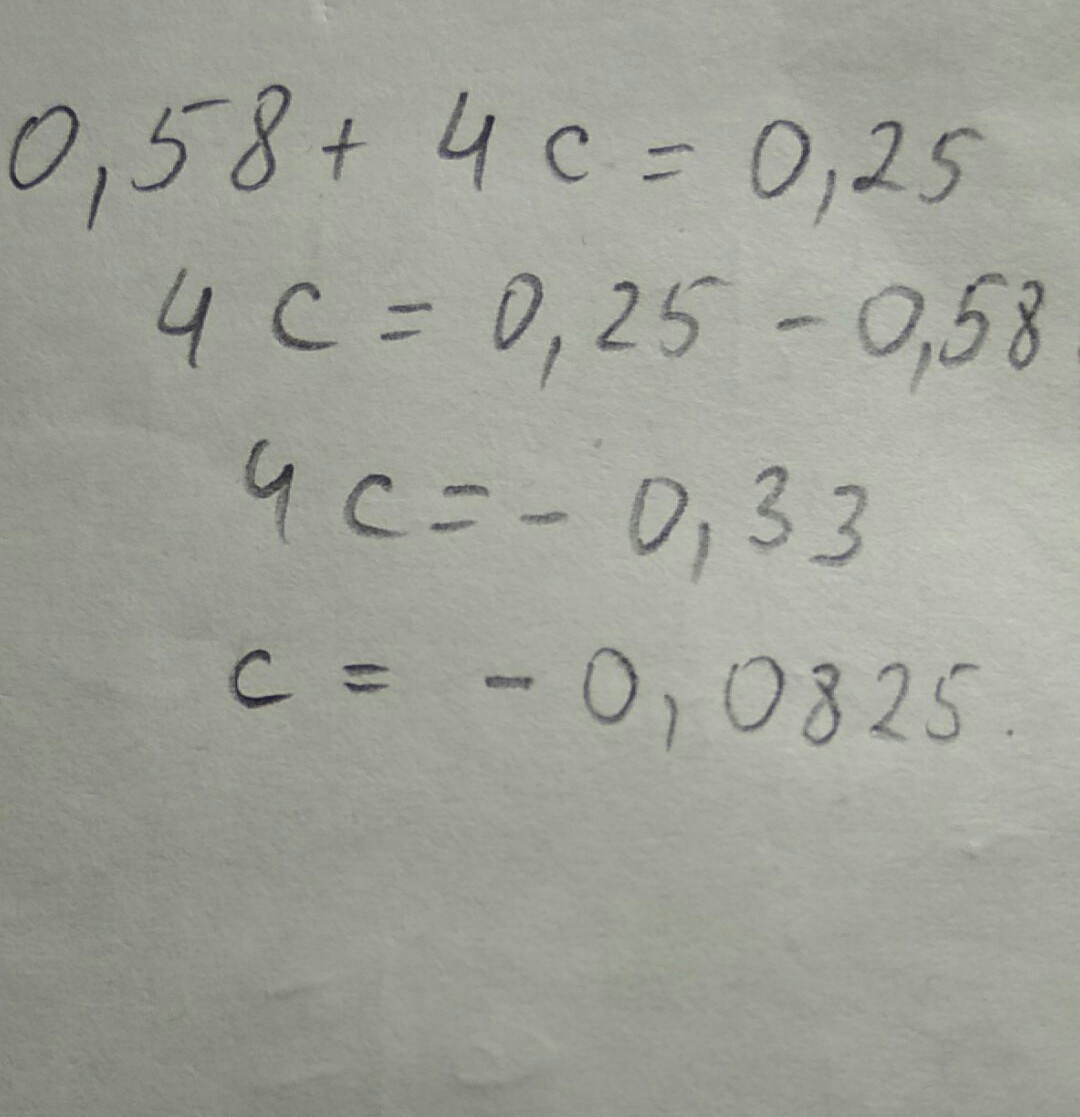 0,58 + 4 c = 0,25
4 c = 0,25 - 0,58
4 c = - 0,33
c = - 0,0825.